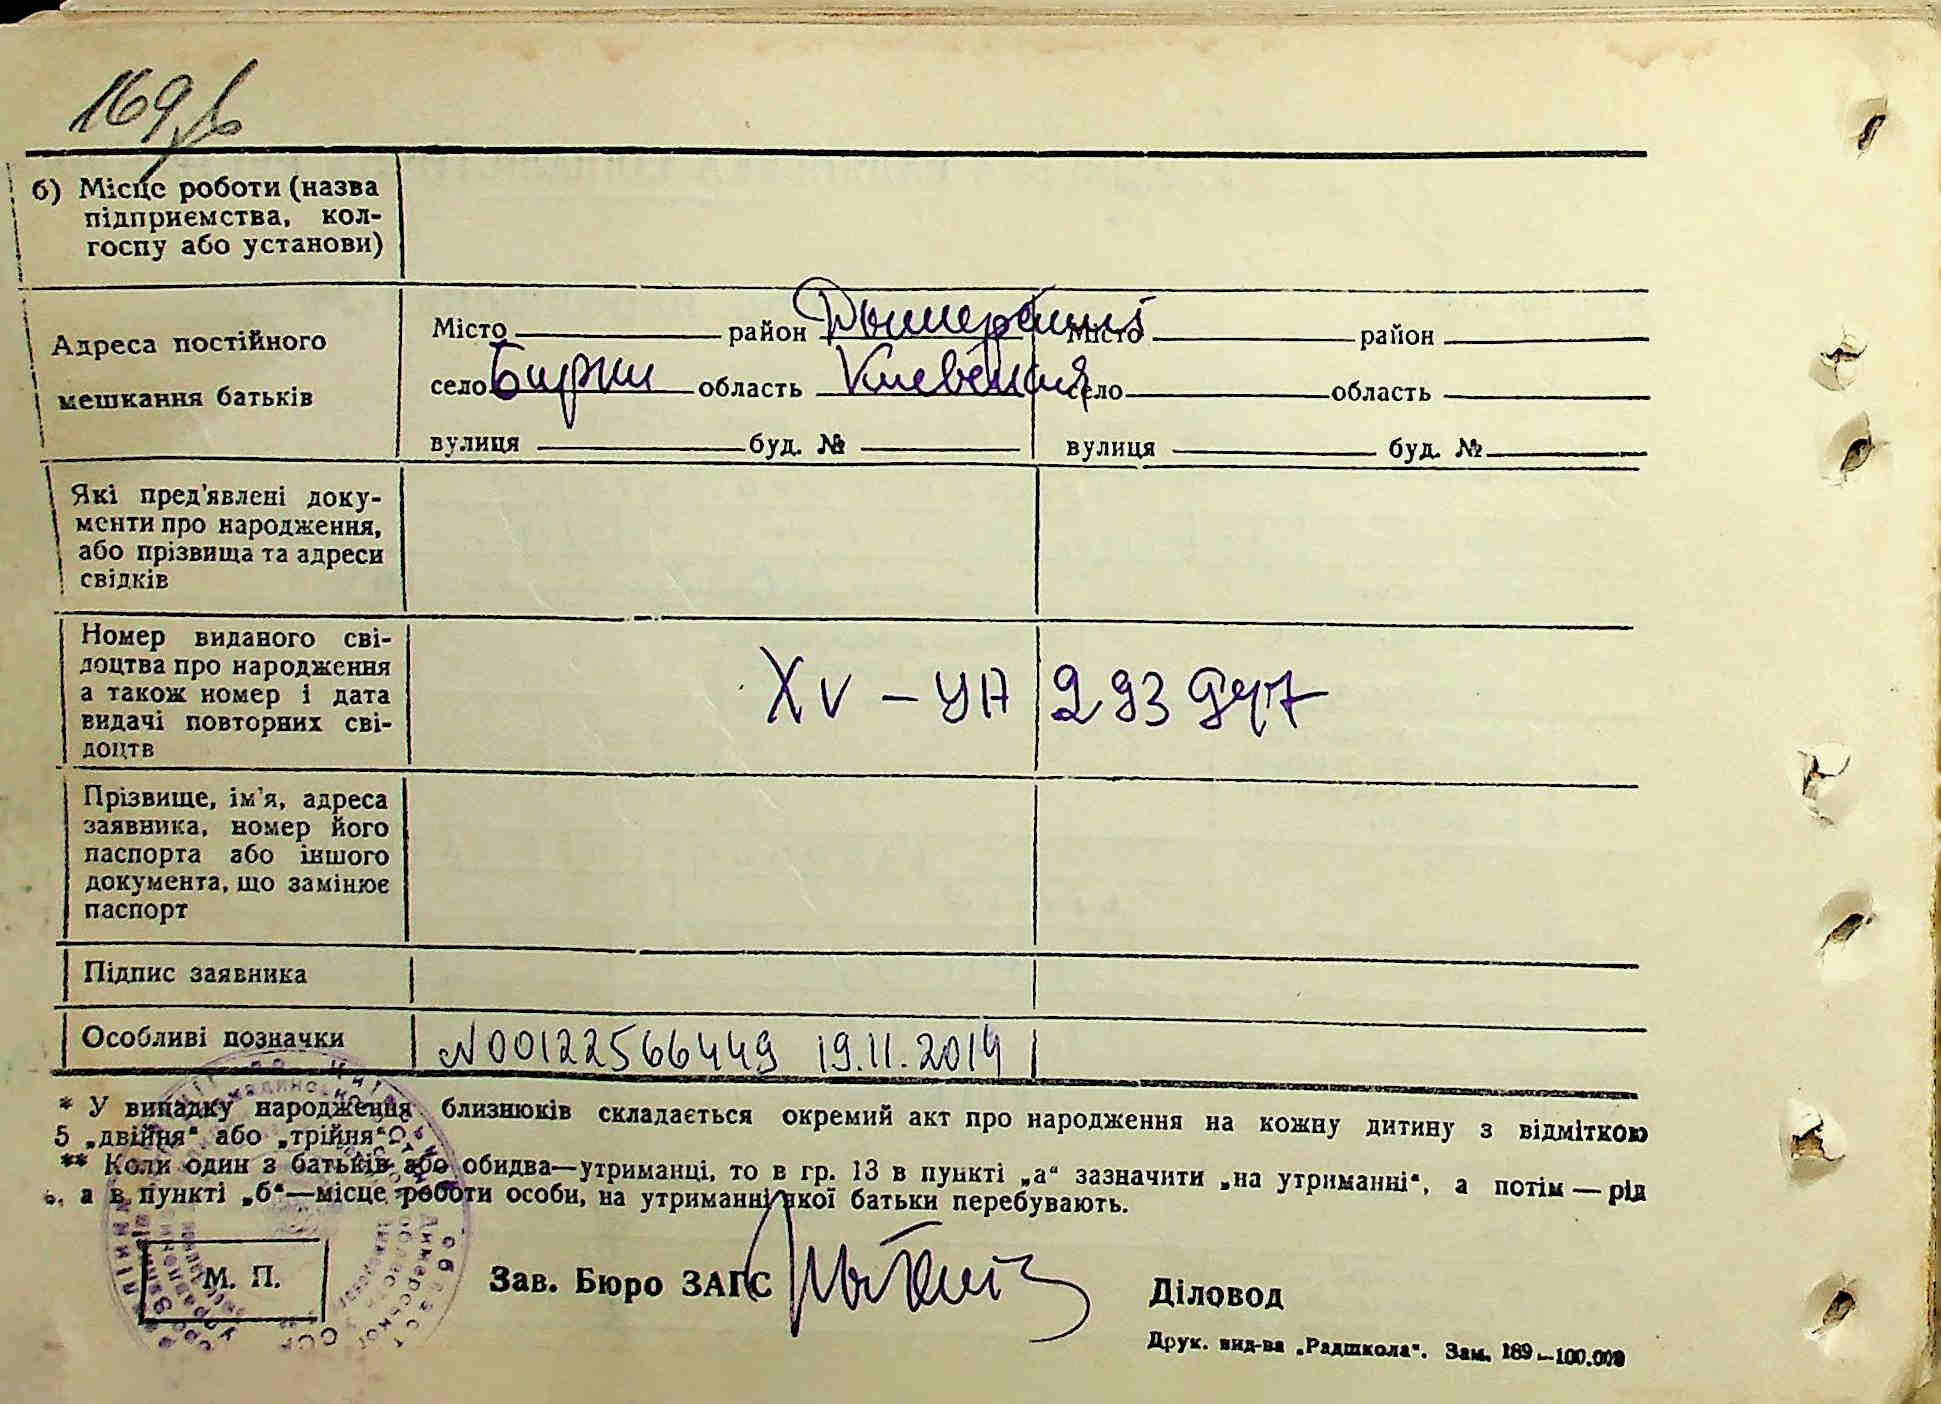 169
б) Місце роботи (назва
підприємства, кол-
госпу або установи)
Адреса постійного
мешкання батьків
Місто район Дымерский Місто район
село Бирки область Киевская село область
вулиця буд. № вулиця буд. №
Які пред'явлені доку-
менти про народження,
або прізвища та адреси
свідків
Номер виданого сві-
доцтва про народження
а також номер і дата
видачі повторних сві-
доцтв
XV – УА 293
Прізвище, ім'я, адреса
заявника, номер його
паспорта або іншого
документа, що замінює
паспорт
Підпис заявника
Особливі позначки
N00122566449 19.11.2014
* У випадку народження близнюків складається окремий акт про народження на кожну дитину з відміткою
5 „двійня“ або „трійня“.
** Коли один з батьків або обидва—утриманці, то в гр. 13 в пункті „а“ зазначити „на утриманні“, а потім — рід
а в пункті „б“—місце роботи особи, на утриманні якої батьки перебувають.
М. П.
Зав. Бюро ЗАГС
Діловод
Друк. вид-ва „Радшкола“. Зам. 189.—100.000